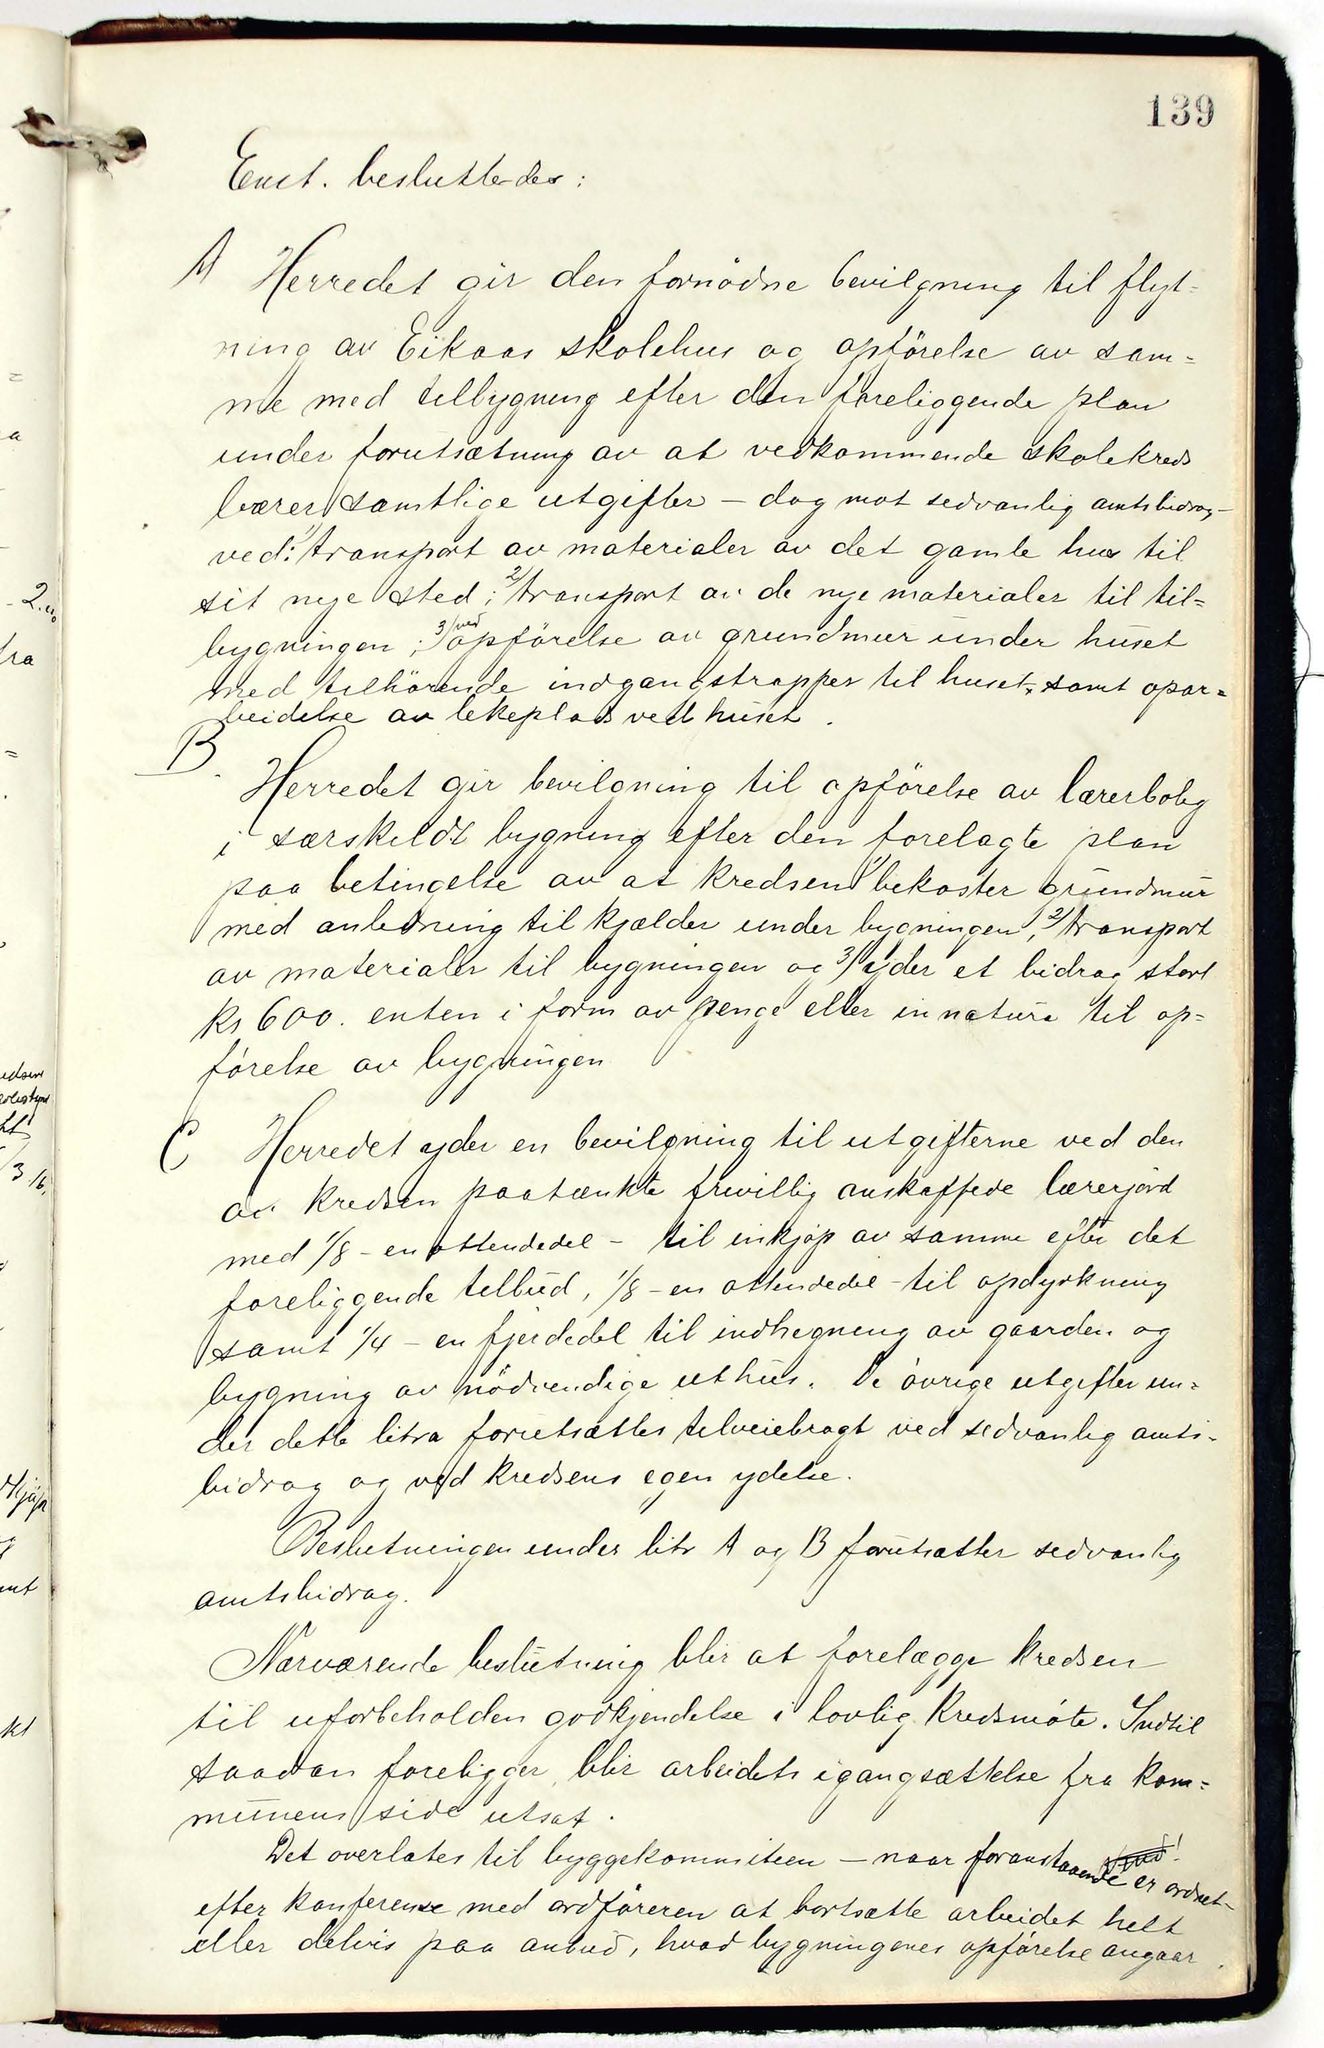 139
Enst. besluttedes:
A Herredet gir den fornödne bevilgning til flyt-
ning av Eikaas skolehus og opförelse av sam-
me med tilbygning efter den foreliggende plan
under forutsætning av at vedkommende skolekreds
bærer samtlige utgifter – dog mot sedvanlig amtsbidrag –
ved: 1/ transport av materialer av det gamle hus til
sit nye sted; 2/ transport av de nye materialer til til-
bygningen; 3/ ved opförelse av grundmur under huset
med tilhörende indgangstrapper til huset, samt opar-
beidelse av lekeplads ved huset.
B.
Herredet gir bevilgning til opförelse av lærerbolig
i særskildt bygning efter den forelagte plan
paa betingelse av at kredsen 1/ bekoster grundmur
med anledning til kjælder under bygningen, 2/ transport
av materialer til bygningen og 3/ yder et bidrag stort
kr 600. enten i form av penge eller in natura til op-
förelse av bygningen
C Herredet yder en bevilgning til utgifterne ved den
av kredsen paatænkte frivillig anskaffede lærerjord
med 1/8 – en ottendedel – til inkjöp av samme efter det
foreliggende tilbud, 1/8 – en ottendedel – til opdyrkning
samt 1/4 – en fjerdedel til indhegning av gaarden og
bygning av nödvendige uthus. De övrige utgifter un-
der dette litra forutsættes tilveiebragt ved sedvanlig amts-
bidrag og ved kredsens egen ydelse.
Beslutningen under litr A og B forutsætter sedvanlig
amtsbidrag.
Nærværende beslutning blir at forelægge kredsen
til uforbeholden godkjendelse i lovlig kredsmöte. Indtil
saadan foreligger blir arbeidets igangsættelse fra kom-
munens side utsat.
Det overlates til byggekommiteen – naar foranstaaende er ordnet –
efter konferense med ordföreren at bortsætte arbeidet helt
eller delvis paa anbud, hvad bygningenes opförelse angaar.